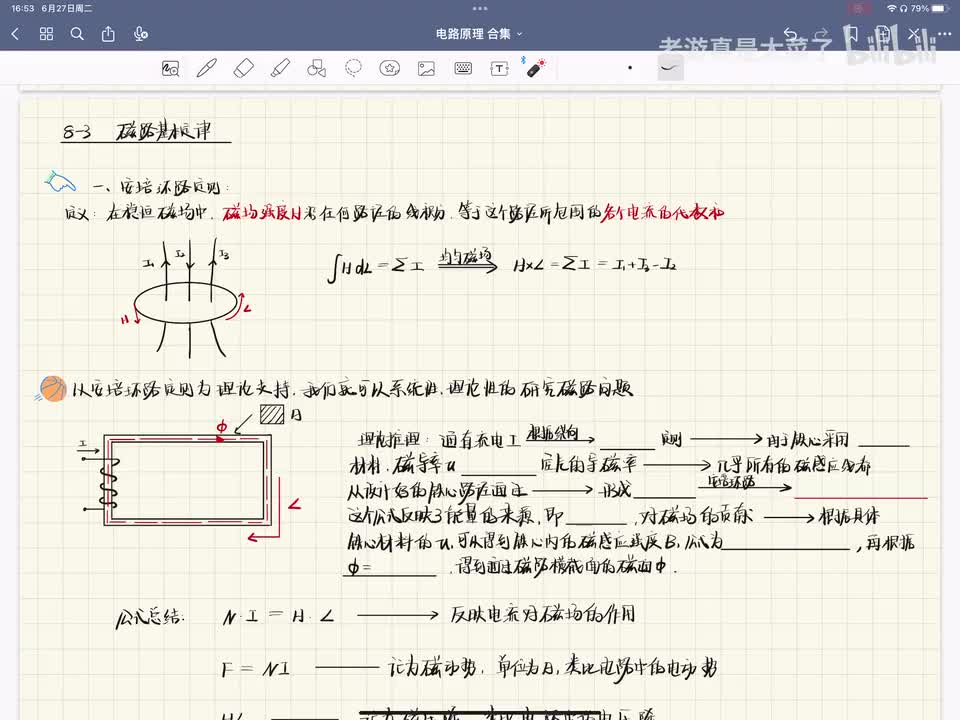 16:53 6月27日周二
79%
电路原理 合集
老游真是大菜了 bilibili
8-3 磁路基本定律
一、安培环路定则:
定义: 在稳恒磁场中, 磁场强度H沿任何路径的线积分, 等于这个路径所包围的各个电流的代数和
I₁ I₂ I₃
∫HdL=ΣI 均匀磁场 H×L=ΣI=I₁+I₃-I₂
H L
以安培环路定则为理论支持, 我们就可以系统性、理论性的研究磁路问题
Φ A
I
L
理论推理: 通有充电I 根据纵向 ____ 定则 → 由于铁心采用 ____
材料, 磁导率u ____ 空气的导磁率 → 几乎所有的磁感应线都
从设计好的铁心路径通过 → 形成 ____ 安培环路 → ____
这个公式反映了能量的来源, 即 ____, 对磁场的贡献 → 根据具体
铁心材料的u, 可以得到铁心内的磁感应强度B, 公式为 ____, 再根据
Φ= ____, 得到通过磁路横截面的磁通Φ.
公式总结: N·I=H·L → 反映电流对磁场的作用
F=NI — 记为磁动势, 单位为A, 类比电路中的电动势
HL